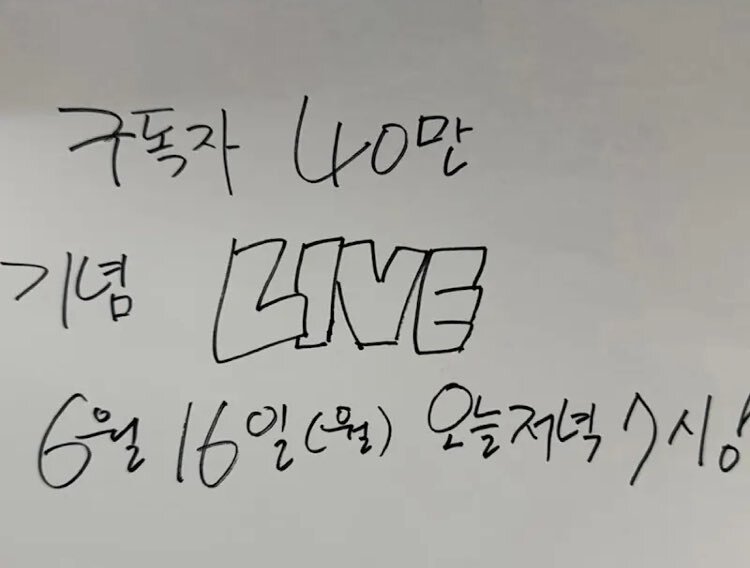 구독자 40만
기념 LIVE
6월 16일(월) 오늘저녁 7시